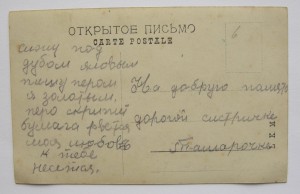 ОТКРЫТОЕ ПИСЬМО
CARTE POSTALE
6
сижу под
дубом
пишу пером
я золотым,
перо скрипит
бумага рвется
моя любовь
к тебе
несется.
На добрую память
дорогой сестричке
Тамарочке